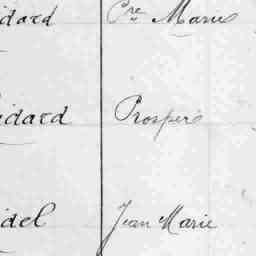 dard Cre Marie
idard Prosper
idel Jean Marie